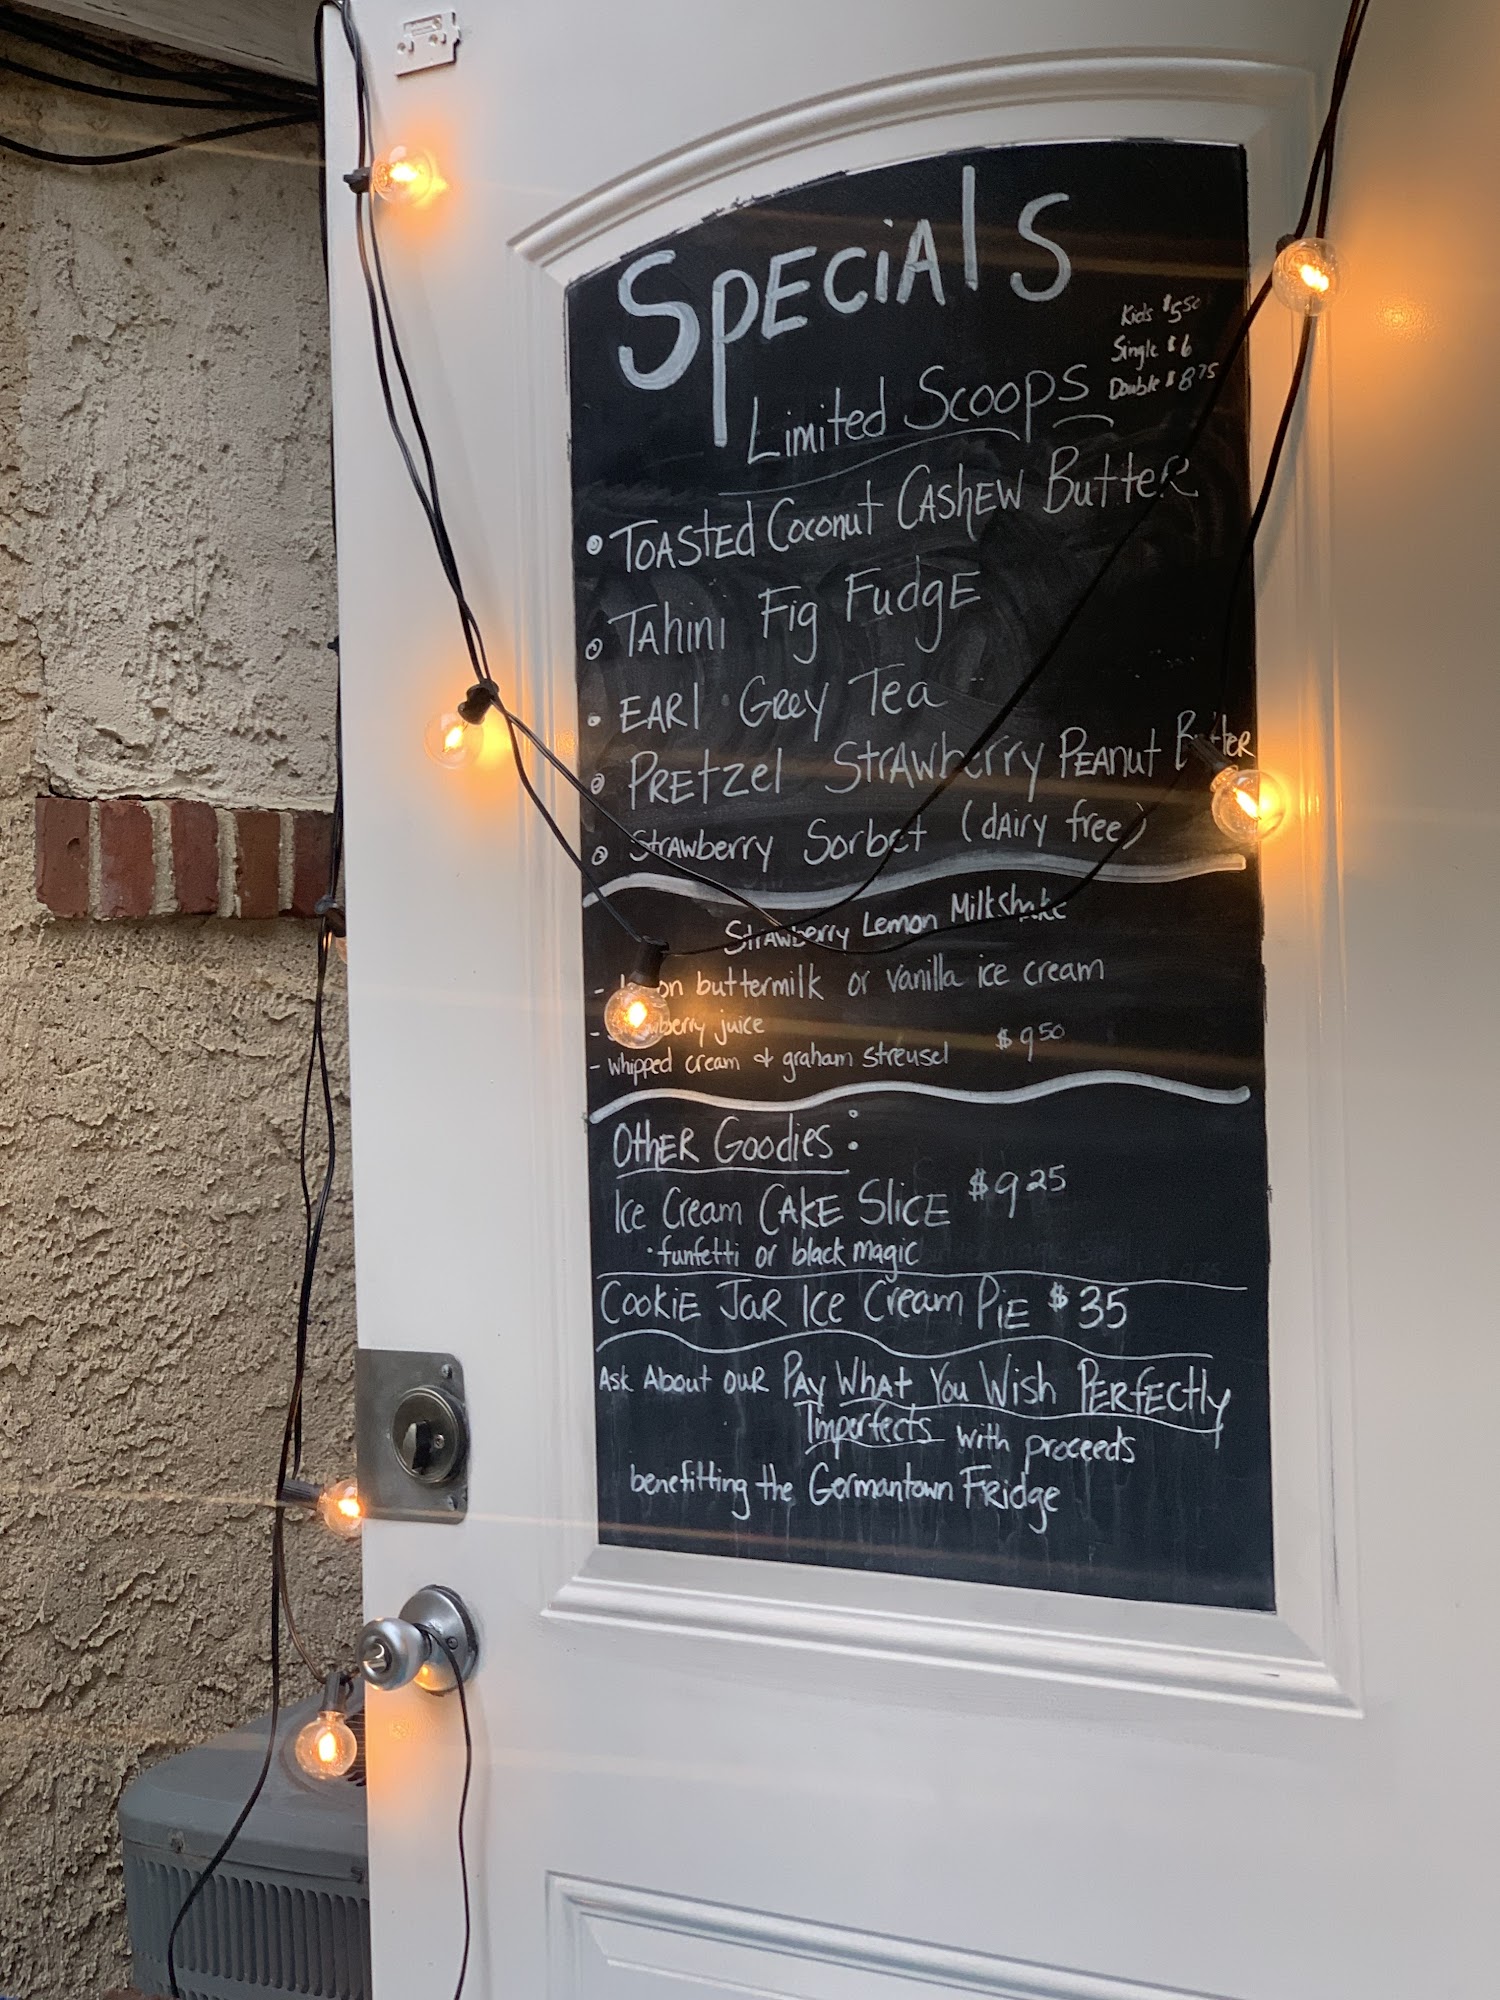 Specials
Kids $5.50
Single $6
Double $8.75
Limited Scoops
Toasted Coconut Cashew Butter
Tahini Fig Fudge
Earl Grey Tea
Pretzel Strawberry Peanut Butter
Strawberry Sorbet (dairy free)
Strawberry Lemon Milkshake
- lemon buttermilk or vanilla ice cream
- strawberry juice
- whipped cream & graham streusel $9.50
Other Goodies:
Ice Cream Cake Slice $9.25
· funfetti or black magic
Cookie Jar Ice Cream Pie $35
Ask About our Pay What You Wish Perfectly
Imperfects with proceeds
benefitting the Germantown Fridge